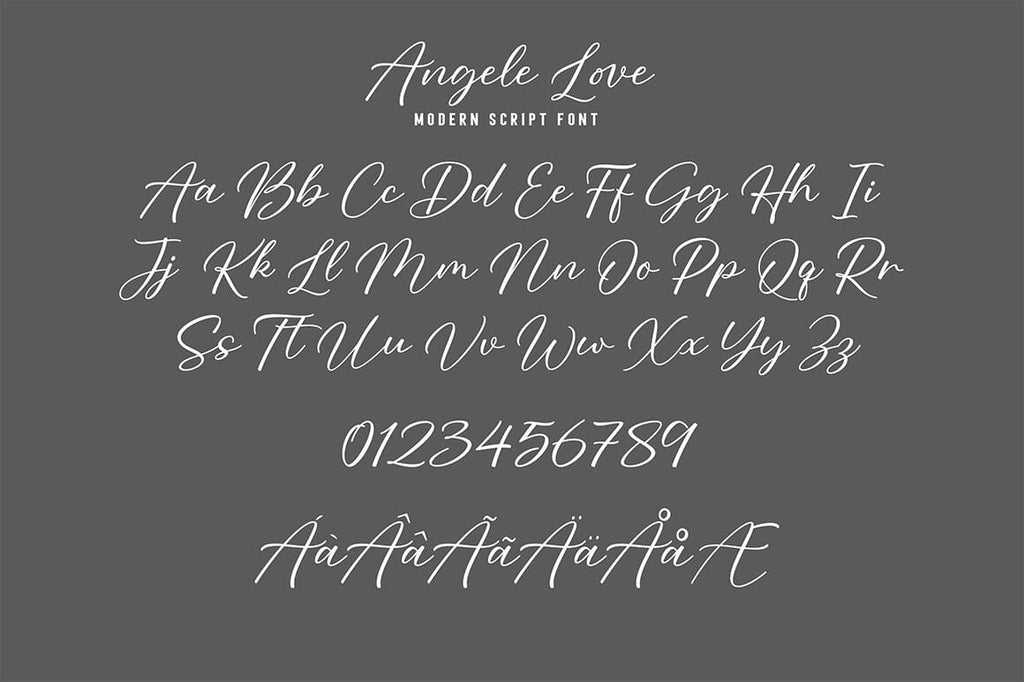 Angele Love
MODERN SCRIPT FONT
Aa Bb Cc Dd Ee Ff Gg Hh Ii
Jj Kk Ll Mm Nn Oo Pp Qq Rr
Ss Tt Uu Vv Ww Xx Yy Zz
0123456789
ÁàÂâÃãÄäÅåÆ